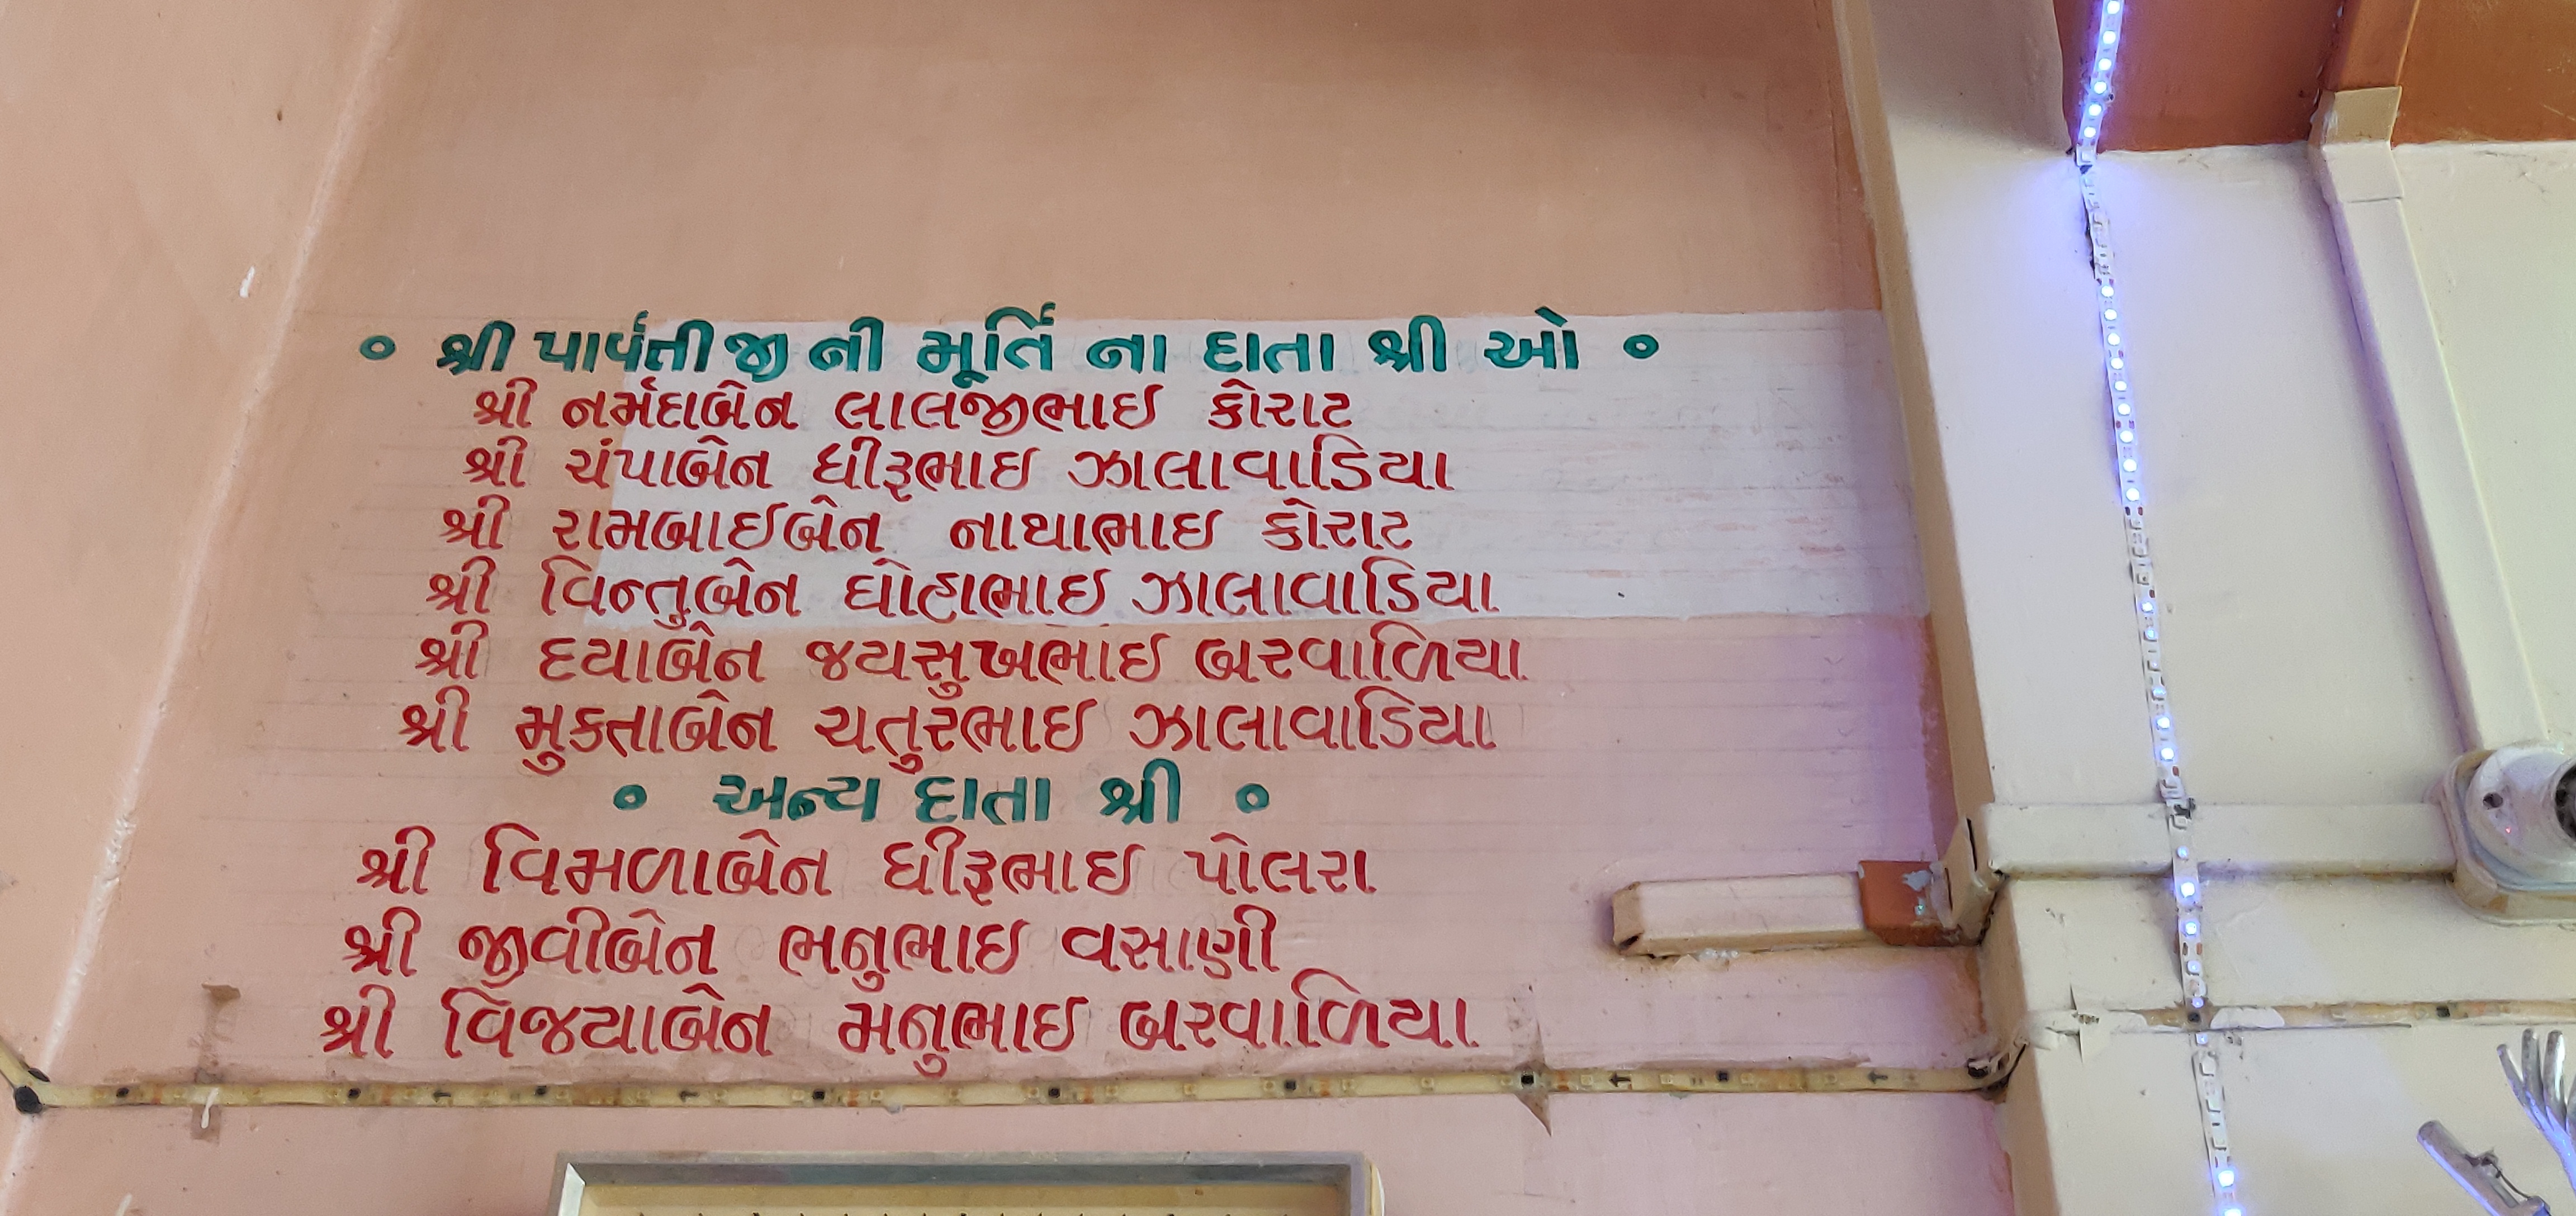 ° શ્રી પાર્વતીજી ની મૂર્તિ ના દાતા શ્રી ઓ °
શ્રી નર્મદાબેન લાલજીભાઈ કોરાટ
શ્રી ચંપાબેન ધીરૂભાઇ ઝાલાવાડિયા
શ્રી રામબાઈબેન નાથાભાઇ કોરાટ
શ્રી વિન્તુબેન ઘોહાભાઇ ઝાલાવાડિયા
શ્રી દયાબેન જયસુખભાઈ બરવાળિયા
શ્રી મુકતાબેન ચતુરભાઈ ઝાલાવાડિયા
° અન્ય દાતા શ્રી °
શ્રી વિમળાબેન ધીરૂભાઇ પોલરા
શ્રી જીવીબેન ભનુભાઇ વસાણી
શ્રી વિજયાબેન મનુભાઈ બરવાળિયા